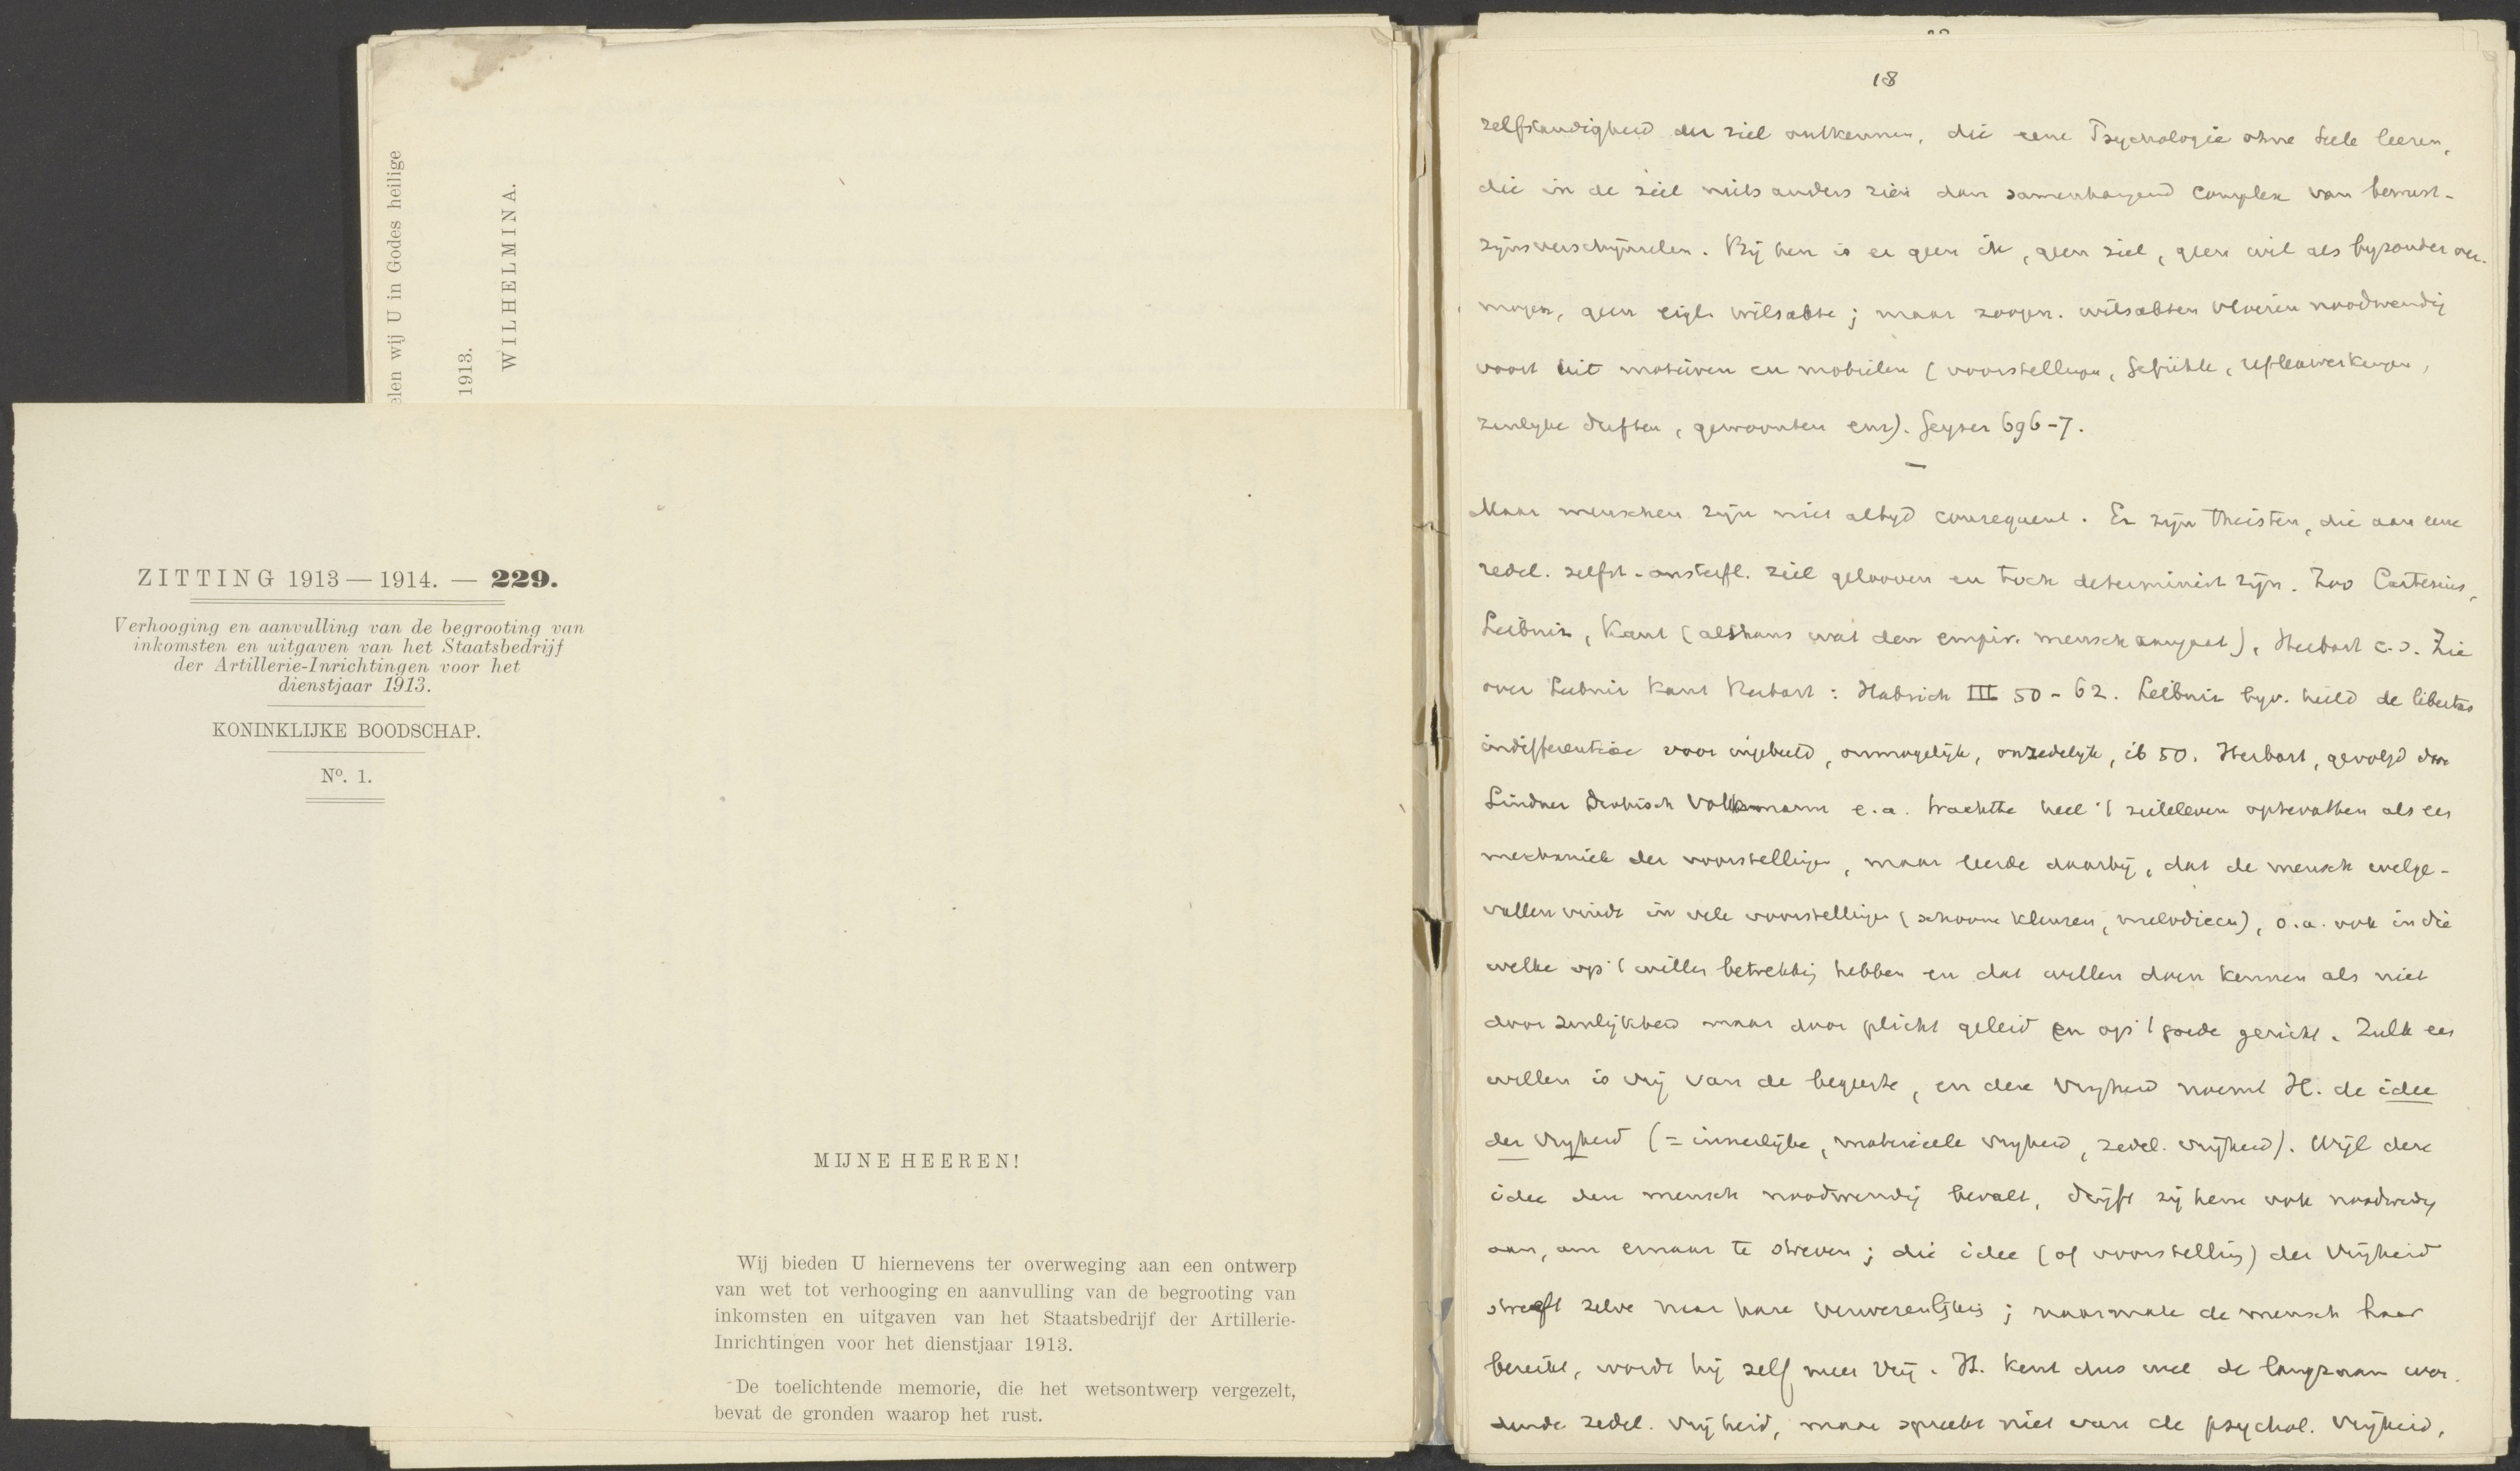 elen wij U in Godes heilige
1913.
WILHELMINA.
ZITTING 1913 — 1914. — 229.
Verhooging en aanvulling van de begrooting van
inkomsten en uitgaven van het Staatsbedrijf
der Artillerie-Inrichtingen voor het
dienstjaar 1913.
KONINKLIJKE BOODSCHAP.
Nº. 1.
MIJNE HEEREN!
Wij bieden U hiernevens ter overweging aan een ontwerp
van wet tot verhooging en aanvulling van de begrooting van
inkomsten en uitgaven van het Staatsbedrijf der Artillerie-
Inrichtingen voor het dienstjaar 1913.
De toelichtende memorie, die het wetsontwerp vergezelt,
bevat de gronden waarop het rust.
18
zelfstandigheid der ziel ontkennen, die eene Psychologie ohne Seele leeren,
die in de ziel niets anders zien dan samenhangend complex van bewust-
zijnsverschijnselen. Bij hen is er geen ik, geen ziel, geen wil als byzonder ver-
mogen, geen eigl. wilsakte; maar zoogen. wilsakten vloeien noodwendig
voort uit motieven en mobielen (voorstellingen, Gefühle, reflexwerkingen,
zinlyke driften, gewoonten enz). Geyser 696-7.
Maar menschen zijn niet altyd consequent. Er zijn theisten, die aan eene
redel. zelfst. onstoffl. ziel gelooven en toch determinist zijn. Zoo Cartesius,
Leibniz, Kant (althans wat den empir. mensch aangaat), Herbart c.s. Zie
over Leibniz Kant Herbart: Habrich III 50-62. Leibniz byv. hield de libertas
indifferentiae voor ingebeeld, onmogelyk, onzedelyk, ib 50. Herbart, gevolgd door
Lindner Drobisch Volkmann e.a. trachtte heel 't zieleleven optevatten als een
mechaniek der voorstellingen, maar leerde daarbij, dat de mensch welge-
vallen vindt in vele voorstellingen (schoone kleuren, melodieen), o.a. ook in die
welke op 't willen betrekking hebben en dat willen doen kennen als niet
door zinlijkheid maar door plicht geleid en op 't goede gericht. Zulk een
willen is vrij van de begeerte, en deze vryheid noemt H. de idee
der vryheid (= innerlijke, materieele vryheid, zedel. vrijheid). Wijl deze
idee den mensch noodwendig bevalt, drijft zij hem ook noodwendig
aan, om ernaar te streven; die idee (of voorstelling) der vrijheid
streeft zelve naar hare verwezenlijking; naarmate de mensch haar
bereikt, wordt hij zelf meer vrij. H. kent dus wel de langzaam wor-
dende zedel. vrijheid, maar spreekt niet van de psychol. vrijheid,